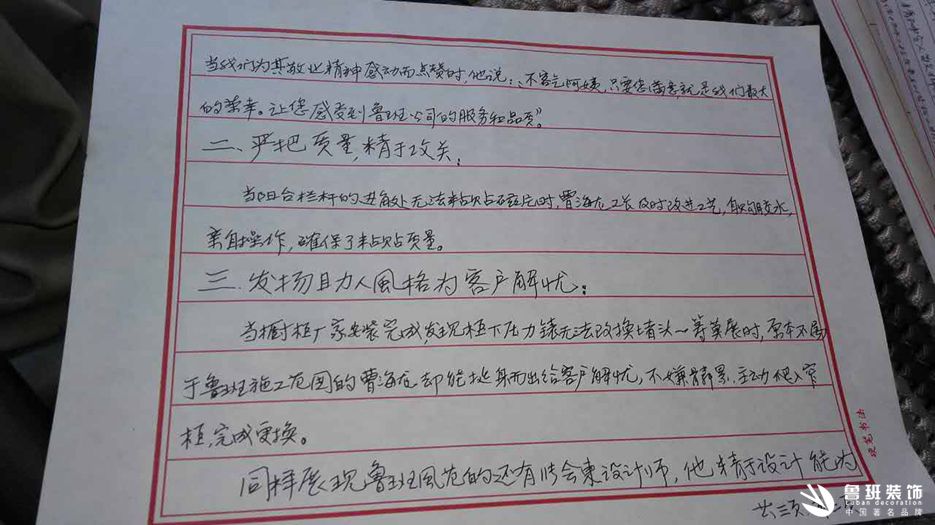 当我们为其敬业精神感动而点赞时,他说:"不客气阿姨,只要您满意就是我们最大
的荣幸。让您感受到鲁班公司的服务和品质。"
二、严把质量,精于攻关:
当阳台栏杆的进角处无法粘贴磁片时,曹海龙工长及时改进工艺,自购胶水,
亲自操作,确保了粘贴质量。
三.发扬助人风格为客户解忧:
当橱柜厂家安装完成,发现柜下压力表无法改换堵头一筹莫展时,原本不属
于鲁班施工范围的曹海龙却能挺身而出给客户解忧,不嫌脏累,主动爬入窄
柜,完成更换。
同样展现鲁班风范的还有 设计师,他精于设计能为
共三页
硬笔书法
鲁班装饰
Luban decoration
中国著名品牌